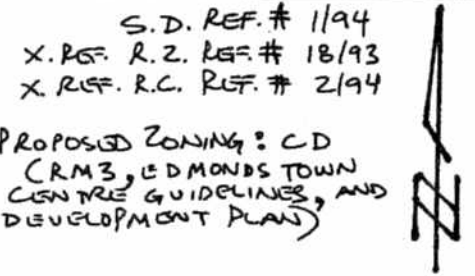 S.D. REF. # 1/94
X. REF. R.Z. REF. # 18/93
X. REF. R.C. REF. # 2/94
PROPOSED ZONING : CD
(RM3, EDMONDS TOWN
CENTRE GUIDELINES, AND
DEVELOPMENT PLAN)
N